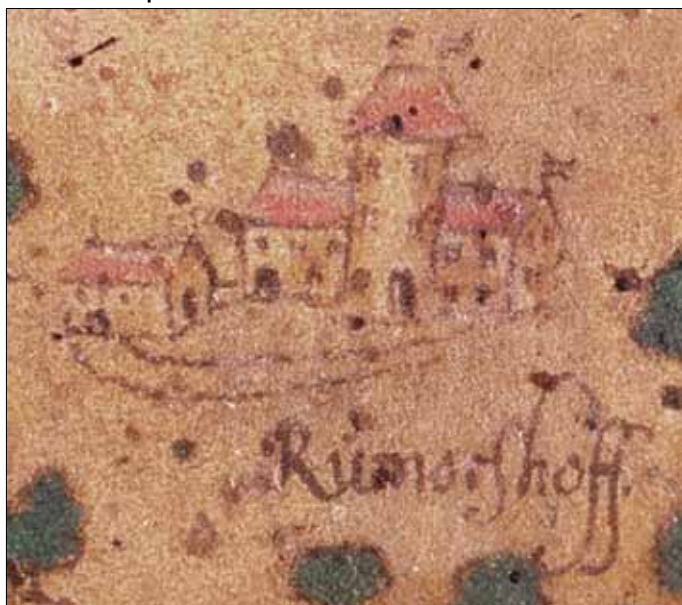 Rümorshoff.